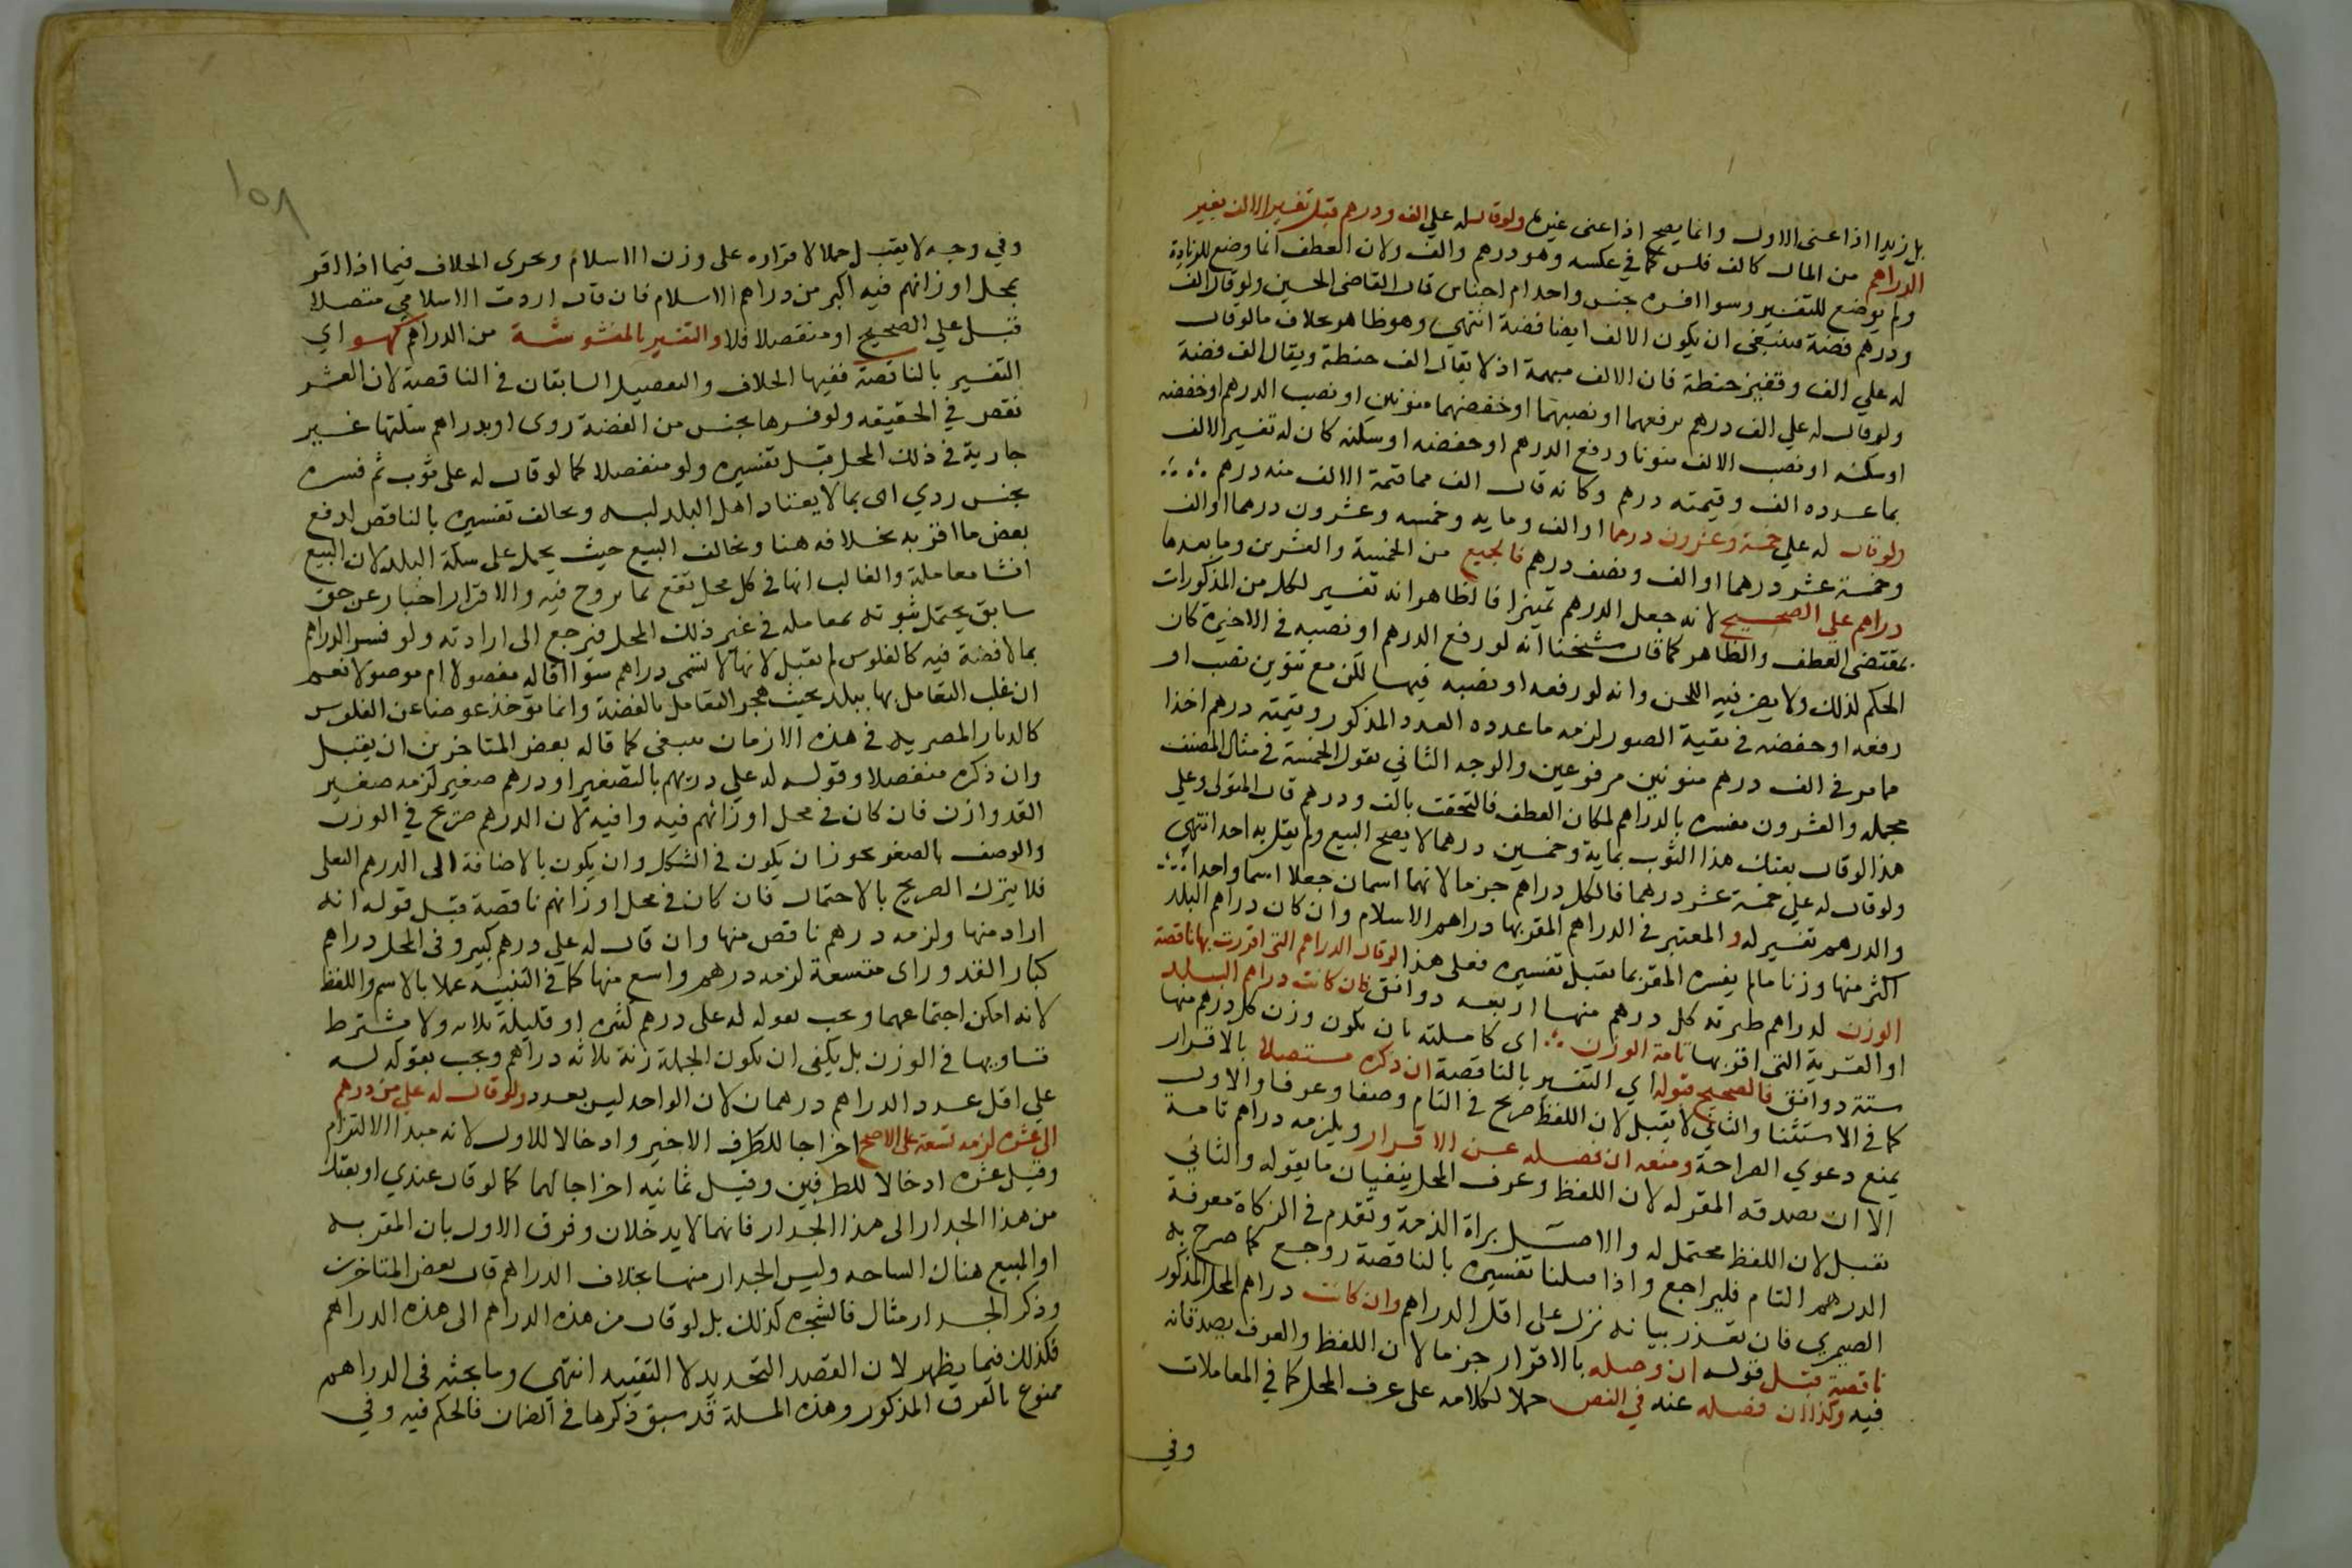 بل زيدا اذا عنى الاول وانما يصح اذا عنى غيره ولو قال له علي الف ودرهم قبل تفسير الالف بغير
الدراهم من المال كالف فلس كما في عكسه وهو درهم والف ولان العطف انما وضع للزيادة
ولم يوضع للتفسير وسوا افسره بجنس واحد ام اجناس قال القاضي الحسين ولو قال الف
ودرهم فضة فينبغي ان يكون الالف ايضا فضة انتهى وهو ظاهر بخلاف ما لو قال
له علي الف وقفيز حنطة فان الالف مبهمة اذ لا يقال الف حنطة ويقال الف فضة
ولو قال له علي الف درهم برفعهما او نصبهما او خفضهما منونين او نصب الدرهم او خفضه
او سكنه او نصب الالف منونا ورفع الدرهم او خفضه او سكنه كان له تفسير الالف
بما عدده الف وقيمته درهم وكانه قال الف مما قيمة الالف منه درهم
ولو قال له علي خمسة وعشرون درهما او الف وماية وخمسه وعشرون درهما او الف
وخمسة عشر درهما او الف ونصف درهم فالجميع من الخمسة والعشرين وما بعدها
دراهم علي الصحيح لانه جعل الدرهم تمييزا فالظاهر انه تفسير لكل من المذكورات
بمقتضى العطف والظاهر كما قال شيخنا انه لو رفع الدرهم او نصبه في الاخيرة كان
الحكم كذلك ولا يضر فيه اللحن وانه لو رفعه او نصبه فيها لكن مع تنوين نصف او
رفعه او خفضه في بقية الصور لزمه ما عدده العدد المذكور وقيمته درهم اخذا
مما مر في الف درهم منونين مرفوعين والوجه الثاني يقول الخمسة في مثال المصنف
مجمله والعشرون مفسره بالدراهم لمكان العطف فالتحقت بالف ودرهم قال المتولى وعلي
هذا لو قال بعتك هذا الثوب بماية وخمسين درهما لا يصح البيع ولم يقل به احد انتهى
ولو قال له علي خمسة عشر درهما فالكل دراهم جزما لانهما اسمان جعلا اسما واحدا
والدرهم تفسير له والمعتبر في الدراهم المقر بها دراهم الاسلام وان كان دراهم البلد
اكثر منها وزنا ما لم يفسره المقر بما يقبل تفسيره فعلى هذا لو قال الدراهم التي اقررت بها ناقصة
الوزن كدراهم طبرية كل درهم منها اربعه دوانق فان كانت دراهم البلد
او القرية التي اقر بها تامة الوزن اي كاملته بان يكون وزن كل درهم منها
ستة دوانق فالصحيح قبوله اي التفسير بالناقصة ان ذكره متصلا بالاقرار
كما في الاستثنا والثاني لا يقبل لان اللفظ صريح في التام وصفا وعرفا والاول
يمنع دعوي الصراحة ومنعه ان فصله عن الاقرار ويلزمه دراهم تامة
الا ان يصدقه المقر له لان اللفظ وعرف المحل ينفيان ما يقوله والثاني
يقبل لان اللفظ محتمل له والاصل براة الذمة وتقدم في الزكاة معرفة
الدرهم التام فليراجع واذا قبلنا تفسيره بالناقصة روجع كما صرح به
الصيمري فان تعذر بيانه نزل على اقل الدراهم وان كانت دراهم المحل المذكور
ناقصة قبل قوله ان وصله بالاقرار جزما لان اللفظ والعرف يصدقانه
فيه وكذا ان فصله عنه في النص حملا لكلامه على عرف المحل كما في المعاملات
وفي
١٥٨
وفي وجه لا يقبل حملا لاقراره على وزن الاسلام ويجري الخلاف فيما اذا اقر
بمحل اوزانهم فيه اكبر من دراهم الاسلام فان قال اردت الاسلامي متصلا
قبل علي الصحيح او منفصلا فلا والتفسير بالمغشوشة من الدراهم كهو اي
التفسير بالناقصة ففيها الخلاف والتفصيل السابقان في الناقصة لان الغش
نقص في الحقيقه ولو فسرها بجنس من الفضة ردي او بدراهم سكتها غير
جارية في ذلك المحل قبل تفسيره ولو منفصلا كما لو قال له علي ثوب ثم فسره
بجنس ردي اي بما لا يعتاد اهل البلد لبسه ويخالف تفسيره بالناقص لرفع
بعض ما اقر به بخلافه هنا ويخالف البيع حيث يحمل على سكة البلد لان البيع
انشا معاملة والغالب انها في كل محل تقع بما يروج فيه والاقرار اخبار عن حق
سابق يحتمل ثبوته بمعاملة في غير ذلك المحل فيرجع الى ارادته ولو فسر الدراهم
بما لا فضة فيه كالفلوس لم يقبل لانها لا تسمى دراهم سوا اقاله مفصولا ام موصولا نعم
ان غلب التعامل بها ببلد بحيث هجر التعامل بالفضة وانما توخذ عوضا عن الفلوس
كالديار المصريه في هذه الازمان فينبغي كما قاله بعض المتاخرين ان يقبل
وان ذكره منفصلا وقوله له علي دريهم بالتصغير او درهم صغير لزمه صغير
القد وازن فان كان في محل اوزانهم فيه وافية لان الدرهم صريح في الوزن
والوصف بالصغر يجوز ان يكون في الشكل وان يكون بالاضافة الى الدرهم البغلى
فلا يترك الصريح بالاحتمال فان كان في محل اوزانهم ناقصة قبل قوله انه
اراد منها ولزمه درهم ناقص منها وان قال له علي درهم كبير وفي المحل دراهم
كبار القد وراى متسعة لزمه درهم واسع منها كما في التنبيه عملا بالاسم واللفظ
لانه امكن اجتماعهما ويجب بقوله له علي دراهم كثيره او قليلة ثلاثه ولا يشترط
تساويها في الوزن بل يكفي ان يكون الجملة زنة ثلاثه دراهم ويجب بقوله له
علي اقل عدد الدراهم درهمان لان الواحد ليس بعدد ولو قال له علي من درهم
الى عشره لزمه تسعة على الاصح اخراجا للطرف الاخير وادخالا للاول لانه مبدا الالتزام
وقيل عشره ادخالا للطرفين وقيل ثمانيه اخراجا لهما كما لو قال عندي او بعتك
من هذا الجدار الى هذا الجدار فانهما لا يدخلان وفرق الاول بان المقر به
او المبيع هناك الساحه وليس الجدار منها بخلاف الدراهم قال بعض المتاخرين
وذكر الجدار مثال فالشجره كذلك بل لو قال من هذه الدراهم الى هذه الدراهم
فكذلك فيما يظهر لان القصد التحديد لا التقييد انتهى وما بحثه في الدراهم
ممنوع بالفرق المذكور وهذه المسلة قد سبق ذكرها في الضمان فالحكم فيه وفي